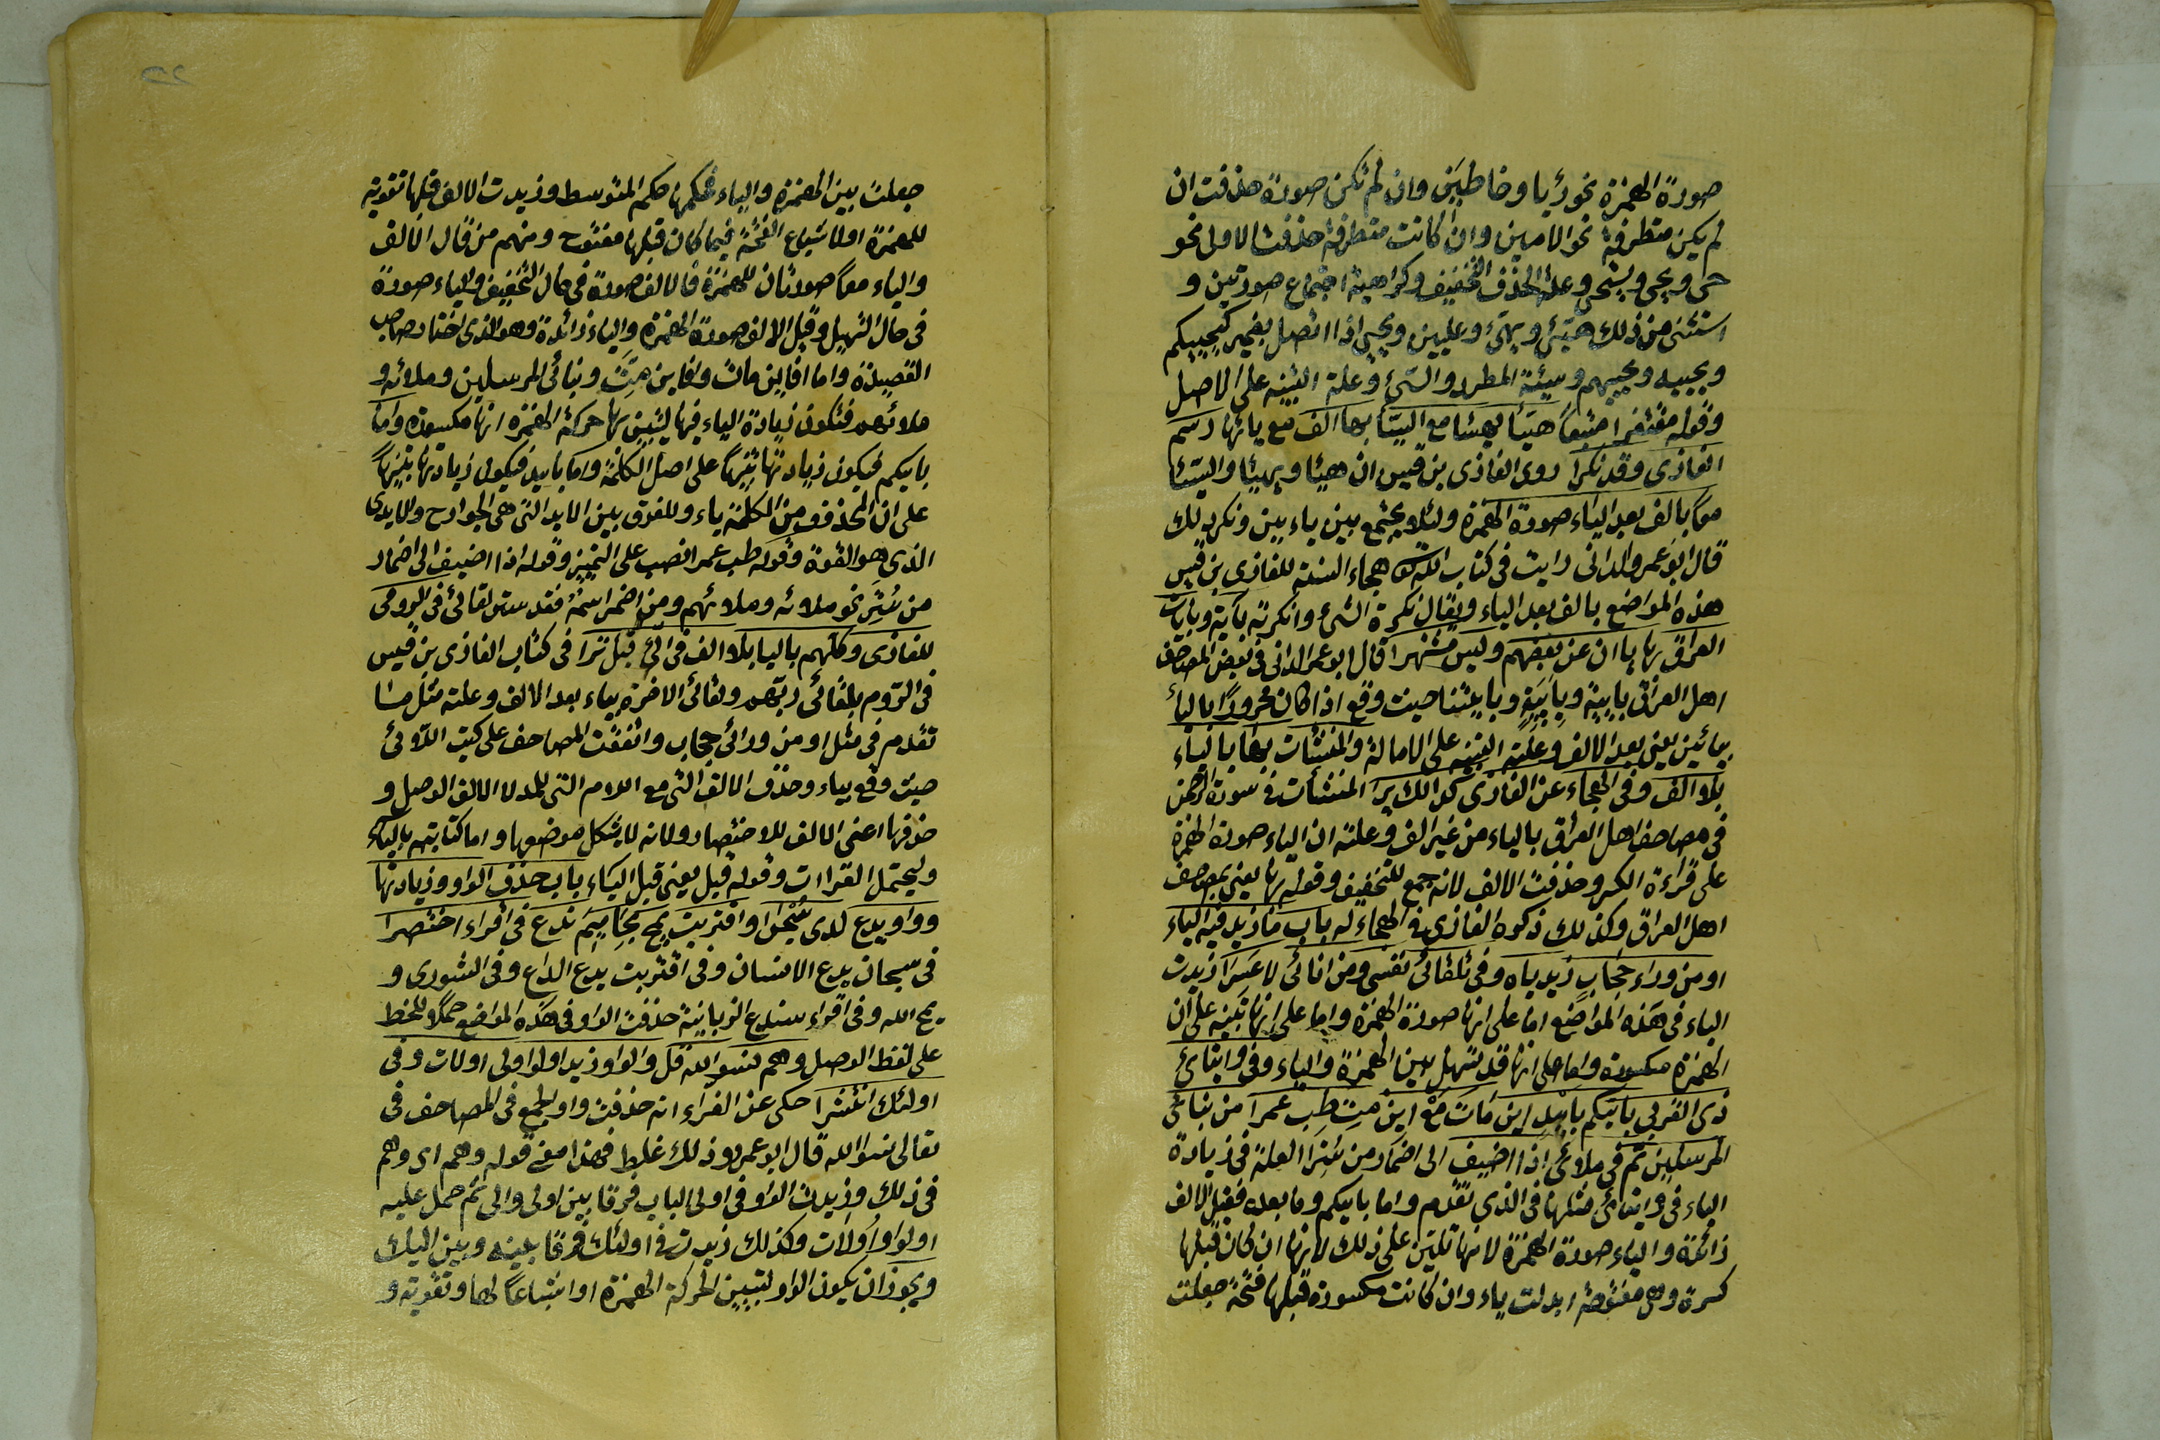 صورة الهمزة نحو رئيا وخاطئين وان لم تكن صورة حذفت ان
لم يكن متطرفة نحو الاميين وان كانت متطرفة حذفت الاولى نحو
حى ويحى ويستحى وعلة الحذف التخفيف وكراهية اجتماع صورتين و
استثنى من ذلك هيئ ويهيئ وعليين ويحيى اذا اتصل بضمير كيحييكم
ويحييه ويحييهم وسيئة المطرد والسيئ وعلة التنبيه على الاصل
وقوله مفتقرا متبعا هيئا يهيئا مع السيئا بها الف مع يائها رسم
الغازى وقد نكرا روى الغازى بن قيس ان هيئا ويهيئا والسيئا
معا بالف بعد الياء صورة الهمزة ولئلا يجتمع بين ياءين ونكر ذلك
قال ابو عمرو الدانى رايت فى كتاب هجاء السنة للغازى بن قيس
هذه المواضع بالف بعد الياء ويقال نكرة الشىء وانكرته بآية وبآيات
العراق بها ياان عن بعضهم وليس مشتهرا قال ابو عمر الدانى فى بعض المصاحف
اهل العراق باييية وباييتنا حيث وقع اذا كان مجرورا بالباء
بيائين يعنى بعد الالف وعلته التنبيه على الامالة والمنشآت بها بالياء
بلا الف وفى الهجاء عن الغازى كذالك يرا المنشئات فى سورة الرحمن
فى مصاحف اهل العراق بالياء من غير الف وعلته ان الياء صورة الهمزة
على قراءة الكسر وحذفت الالف لانه جمع للتخفيف وقوله بها يعنى بمصاحف
اهل العراق وكذلك ذكره الغازى فى الهجاء له باب ما زيد فيه الياء
او من وراء حجاب زيد ياه وفى تلقائ نفسى ومن انائ لا عسرا زيدت
الياء فى هذه المواضع اما على انها صورة الهمزة واما على انها تنبيه على ان
الهمزة مكسورة واما على انها قد تسهل بين الهمزة والياء وفى وايتائ
ذى القربى باييكم باييد اين مات مع اين مت طب عمرا من نبائ
المرسلين ثم فى ملائ اذا اضيف الى اضمار من سترا العلة فى زيادة
الياء فى وايتائ مثلها فى الذى تقدم واما باييكم وما بعده فقيل الالف
زائدة والياء صورة الهمزة لانها تليين على ذلك لانها ان كان قبلها
كسرة وهى مفتوحة ابدلت ياء وان كانت مكسورة قبلها فتحة جعلت
جعلت بين الهمزة والياء فحكمها حكم المتوسط وزيدت الالف قبلها تقوية
للهمزة اولا شباع الفتحة فيما كان قبلها مفتوح ومنهم من قال الالف
والياء معا صورتان للهمزة فالالف صورة فى حال التخفيف والياء صورة
فى حال التسهيل وقيل الالف صورة الهمزة والياء زائدة وهو الذى اختاره صاحب
القصيدة واما افايين مات وافاين مت ونبائ المرسلين وملائه و
ملائهم فتكون زيادة الياء فيها ليتبين بها حركة الهمزة انها مكسورة واما
باييكم فيكون زيادتها تنبيها على اصل الكلمة واما باييد فيكون زيادتها تنبيها
على ان المحذوف من الكلمة ياء وللفرق بين الايد التى هى الجوارح والايدى
الذى هو القوة وقوله طب عمرا نصب على التمييز وقوله اذا اضيف الى اضمار
من ستر نحو ملائه وملائهم ومن اضمر اسمه فقد ستر لقائ فى الرومى
للغازى وكلهم باليا بلا الف فى الئ قبل ترا فى كتاب الغازى بن قيس
فى الروم بلقائ ربهم ولقائ الاخرة بياء بعد الالف وعلته مثل ما
تقدم فى مثل او من ورائ حجاب واتفقت المصاحف على كتب اللائ
حيث وقع بياء وحذف الالف التى مع اللام التى للمد لا الالف الوصل و
حذفها اعنى الالف للاختصار ولانه لا يشكل موضعها واما كتابته بالياء
وليحتمل القراات وقوله قبل يعنى قبل الياء باب حذف الواو وزيادتها
وواو يدع لدى سبحان واقتربت يمح بحاميم ندع فى اقراء اختصرا
فى سبحان يدع الانسان وفى اقتربت يدع الداع وفى الشورى و
يمح الله وفى اقراء سندع الزبانية حذفت الواو فى هذه المواضع حملا للخط
على لفظ الوصل وهم نسوا الله قل والواو زيد اولوا اولى اولات وفى
اولئك انتشرا حكى عن الفراء انه حذفت واو الجمع فى المصاحف فى
تعالى نسوا الله قال ابو عمرو وذلك غلط فهذا معنى قوله وهم اى وهم
فى ذلك وزيدت الواو فى اولى الباب فرقا بين اولى والى ثم حمل عليه
اولوا واولات وكذلك زيدت فى اولئك فرقا بينه وبين اليك
ويجوز ان يكون الواو لتبيين الحركة الهمزة او اشباعا لها وتقوية و